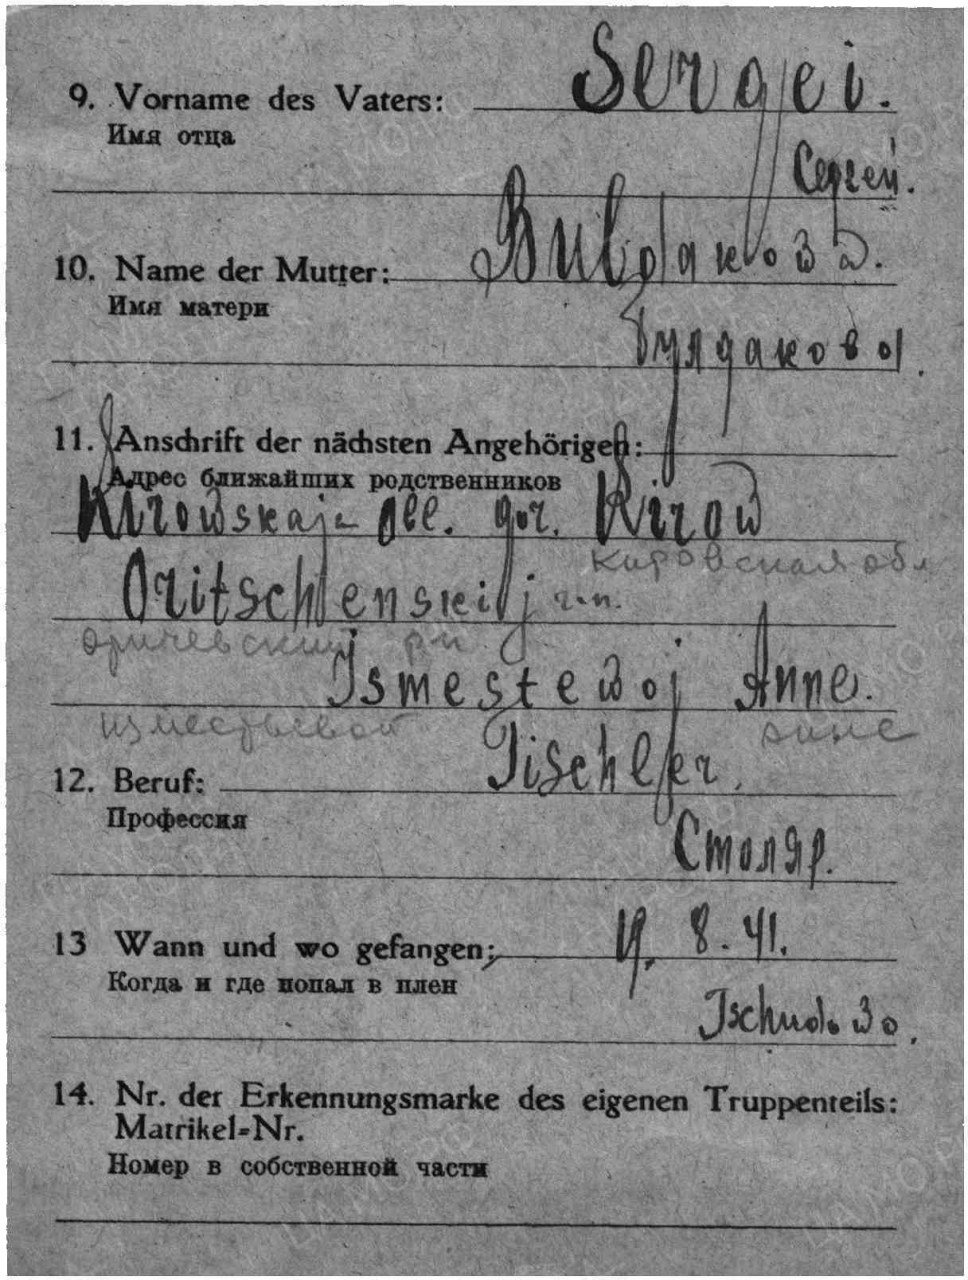 9. Vorname des Vaters: Sergei.
Имя отца
Сергей.
10. Name der Mutter: Buldakowa.
Имя матери
Булдакова.
11. Anschrift der nächsten Angehörigen:
Адрес ближайших родственников
Kirowskaja Obl. gor. Kirow
кировская обл
Oritschenskij r-n.
оричевский рн
Ismestewoj Anne.
изместьевой анне
12. Beruf: Tischler.
Профессия
Столяр.
13 Wann und wo gefangen; 8.41.
Когда и где попал в плен
Tschudowo.
14. Nr. der Erkennungsmarke des eigenen Truppenteils:
Matrikel-Nr.
Номер в собственной части